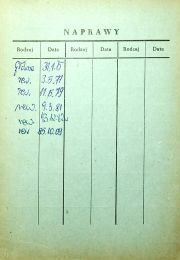 NAPRAWY
Rodzaj Data Rodzaj Data Rodzaj Data
główna
rew. 3.5.77
rew. 11.15.79
rew. 9.3.81
rew.
rew 05.10.09